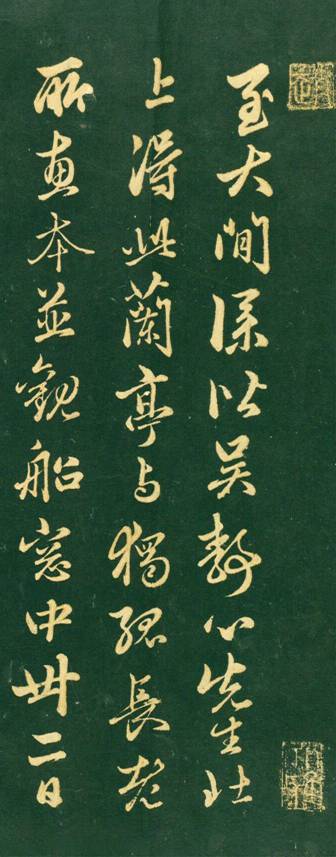 至大間僕從吴静心先生北
上得此蘭亭与獨孤長老
所惠本並觀船窓中卅二日